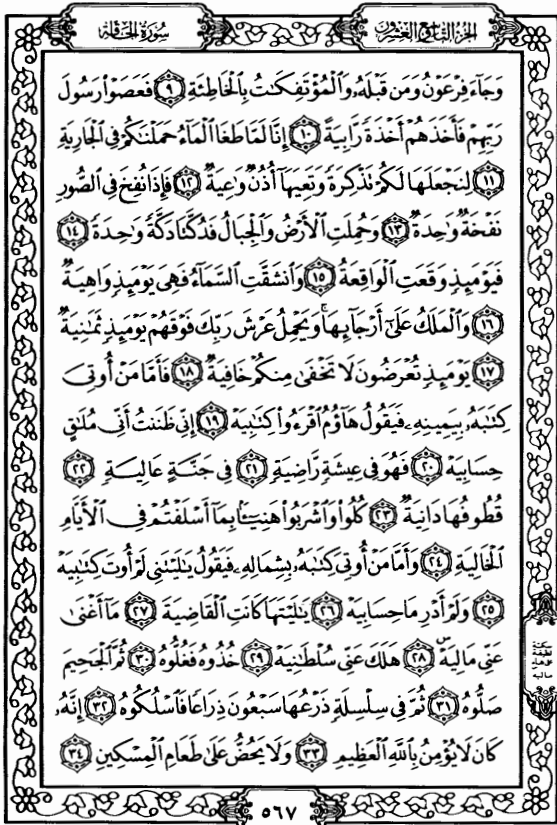 سُورَةُ الحَاقَّةِ
الجُزْءُ التَّاسِعُ وَالعِشْرُونَ
وَجَآءَ فِرْعَوْنُ وَمَن قَبْلَهُۥ وَٱلْمُؤْتَفِكَٰتُ بِٱلْخَاطِئَةِ ٩ فَعَصَوْا۟ رَسُولَ
رَبِّهِمْ فَأَخَذَهُمْ أَخْذَةً رَّابِيَةً ١٠ إِنَّا لَمَّا طَغَا ٱلْمَآءُ حَمَلْنَٰكُمْ فِى ٱلْجَارِيَةِ
١١ لِنَجْعَلَهَا لَكُمْ تَذْكِرَةً وَتَعِيَهَآ أُذُنٌ وَٰعِيَةٌ ١٢ فَإِذَا نُفِخَ فِى ٱلصُّورِ
نَفْخَةٌ وَٰحِدَةٌ ١٣ وَحُمِلَتِ ٱلْأَرْضُ وَٱلْجِبَالُ فَدُكَّتَا دَكَّةً وَٰحِدَةً ١٤
فَيَوْمَئِذٍ وَقَعَتِ ٱلْوَاقِعَةُ ١٥ وَٱنشَقَّتِ ٱلسَّمَآءُ فَهِىَ يَوْمَئِذٍ وَاهِيَةٌ
١٦ وَٱلْمَلَكُ عَلَىٰٓ أَرْجَآئِهَا ۚ وَيَحْمِلُ عَرْشَ رَبِّكَ فَوْقَهُمْ يَوْمَئِذٍ ثَمَٰنِيَةٌ
١٧ يَوْمَئِذٍ تُعْرَضُونَ لَا تَخْفَىٰ مِنكُمْ خَافِيَةٌ ١٨ فَأَمَّا مَنْ أُوتِىَ
كِتَٰبَهُۥ بِيَمِينِهِۦ فَيَقُولُ هَآؤُمُ ٱقْرَءُوا۟ كِتَٰبِيَهْ ١٩ إِنِّى ظَنَنتُ أَنِّى مُلَٰقٍ
حِسَابِيَهْ ٢٠ فَهُوَ فِى عِيشَةٍ رَّاضِيَةٍ ٢١ فِى جَنَّةٍ عَالِيَةٍ ٢٢
قُطُوفُهَا دَانِيَةٌ ٢٣ كُلُوا۟ وَٱشْرَبُوا۟ هَنِيٓـًٔۢا بِمَآ أَسْلَفْتُمْ فِى ٱلْأَيَّامِ
ٱلْخَالِيَةِ ٢٤ وَأَمَّا مَنْ أُوتِىَ كِتَٰبَهُۥ بِشِمَالِهِۦ فَيَقُولُ يَٰلَيْتَنِى لَمْ أُوتَ كِتَٰبِيَهْ
٢٥ وَلَمْ أَدْرِ مَا حِسَابِيَهْ ٢٦ يَٰلَيْتَهَا كَانَتِ ٱلْقَاضِيَةَ ٢٧ مَآ أَغْنَىٰ
عَنِّى مَالِيَهْ ۜ ٢٨ هَلَكَ عَنِّى سُلْطَٰنِيَهْ ٢٩ خُذُوهُ فَغُلُّوهُ ٣٠ ثُمَّ ٱلْجَحِيمَ
صَلُّوهُ ٣١ ثُمَّ فِى سِلْسِلَةٍ ذَرْعُهَا سَبْعُونَ ذِرَاعًا فَٱسْلُكُوهُ ٣٢ إِنَّهُۥ
كَانَ لَا يُؤْمِنُ بِٱللَّهِ ٱلْعَظِيمِ ٣٣ وَلَا يَحُضُّ عَلَىٰ طَعَامِ ٱلْمِسْكِينِ ٣٤
سكتة
لطيفة
على هاء
ماليه
٥٦٧